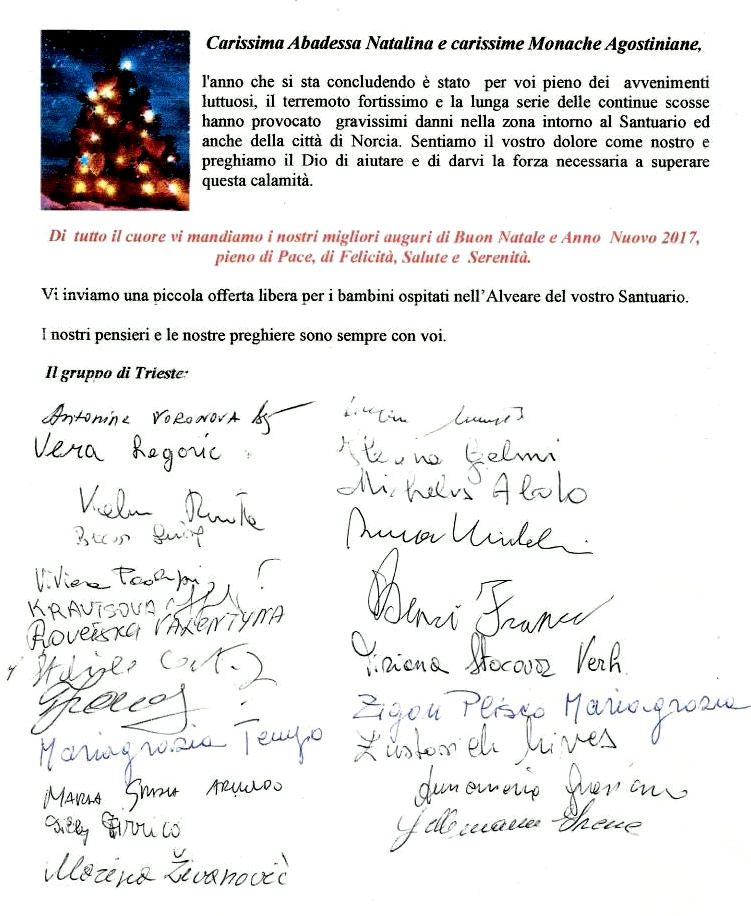 Carissima Abadessa Natalina e carissime Monache Agostiniane,
l'anno che si sta concludendo è stato per voi pieno dei avvenimenti
luttuosi, il terremoto fortissimo e la lunga serie delle continue scosse
hanno provocato gravissimi danni nella zona intorno al Santuario ed
anche della città di Norcia. Sentiamo il vostro dolore come nostro e
preghiamo il Dio di aiutare e di darvi la forza necessaria a superare
questa calamità.
Di tutto il cuore vi mandiamo i nostri migliori auguri di Buon Natale e Anno Nuovo 2017,
pieno di Pace, di Felicità, Salute e Serenità.
Vi inviamo una piccola offerta libera per i bambini ospitati nell'Alveare del vostro Santuario.
I nostri pensieri e le nostre preghiere sono sempre con voi.
Il gruppo di Trieste:
Antonina VORONOVA
Vera Regoric
Viviana
KRAVTSOVA
VALENTYNA
Mariagrazia Tempo
MARIA GRAZIA
Errico
Marina Živanović
Gelmi
Michelus
Franco
Tiziana Stocovaz Verh
Zigon Plisco Mariagrazia
Nives
Annamaria